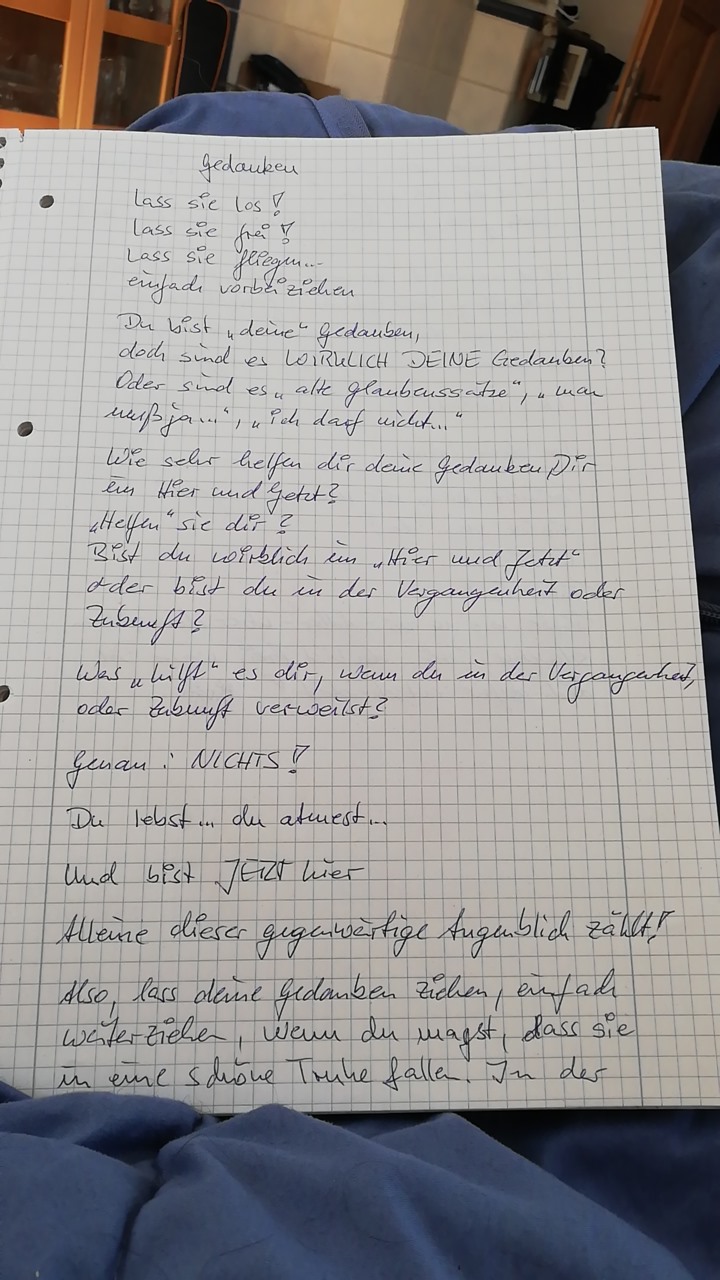 Gedanken
Lass sie los!
Lass sie frei!
Lass sie fliegen...
einfach vorbeiziehen
Du bist „deine“ Gedanken,
doch sind es WIRKLICH DEINE Gedanken?
Oder sind es „alte Glaubenssätze“, „man
muß ja...“, „ich darf nicht...“
Wie sehr helfen dir deine Gedanken Dir
im Hier und Jetzt?
„Helfen“ sie dir?
Bist du wirklich im „Hier und Jetzt“
oder bist du in der Vergangenheit oder
Zukunft?
Was „hilft“ es dir, wenn du in der Vergangenheit,
oder Zukunft verweilst?
Genau: NICHTS!
Du lebst... du atmest...
Und bist JETZT hier
Alleine dieser gegenwärtige Augenblick zählt!
Also, lass deine Gedanken ziehen, einfach
weiterziehen, wenn du magst, dass sie
in eine schöne Truhe fallen. In der